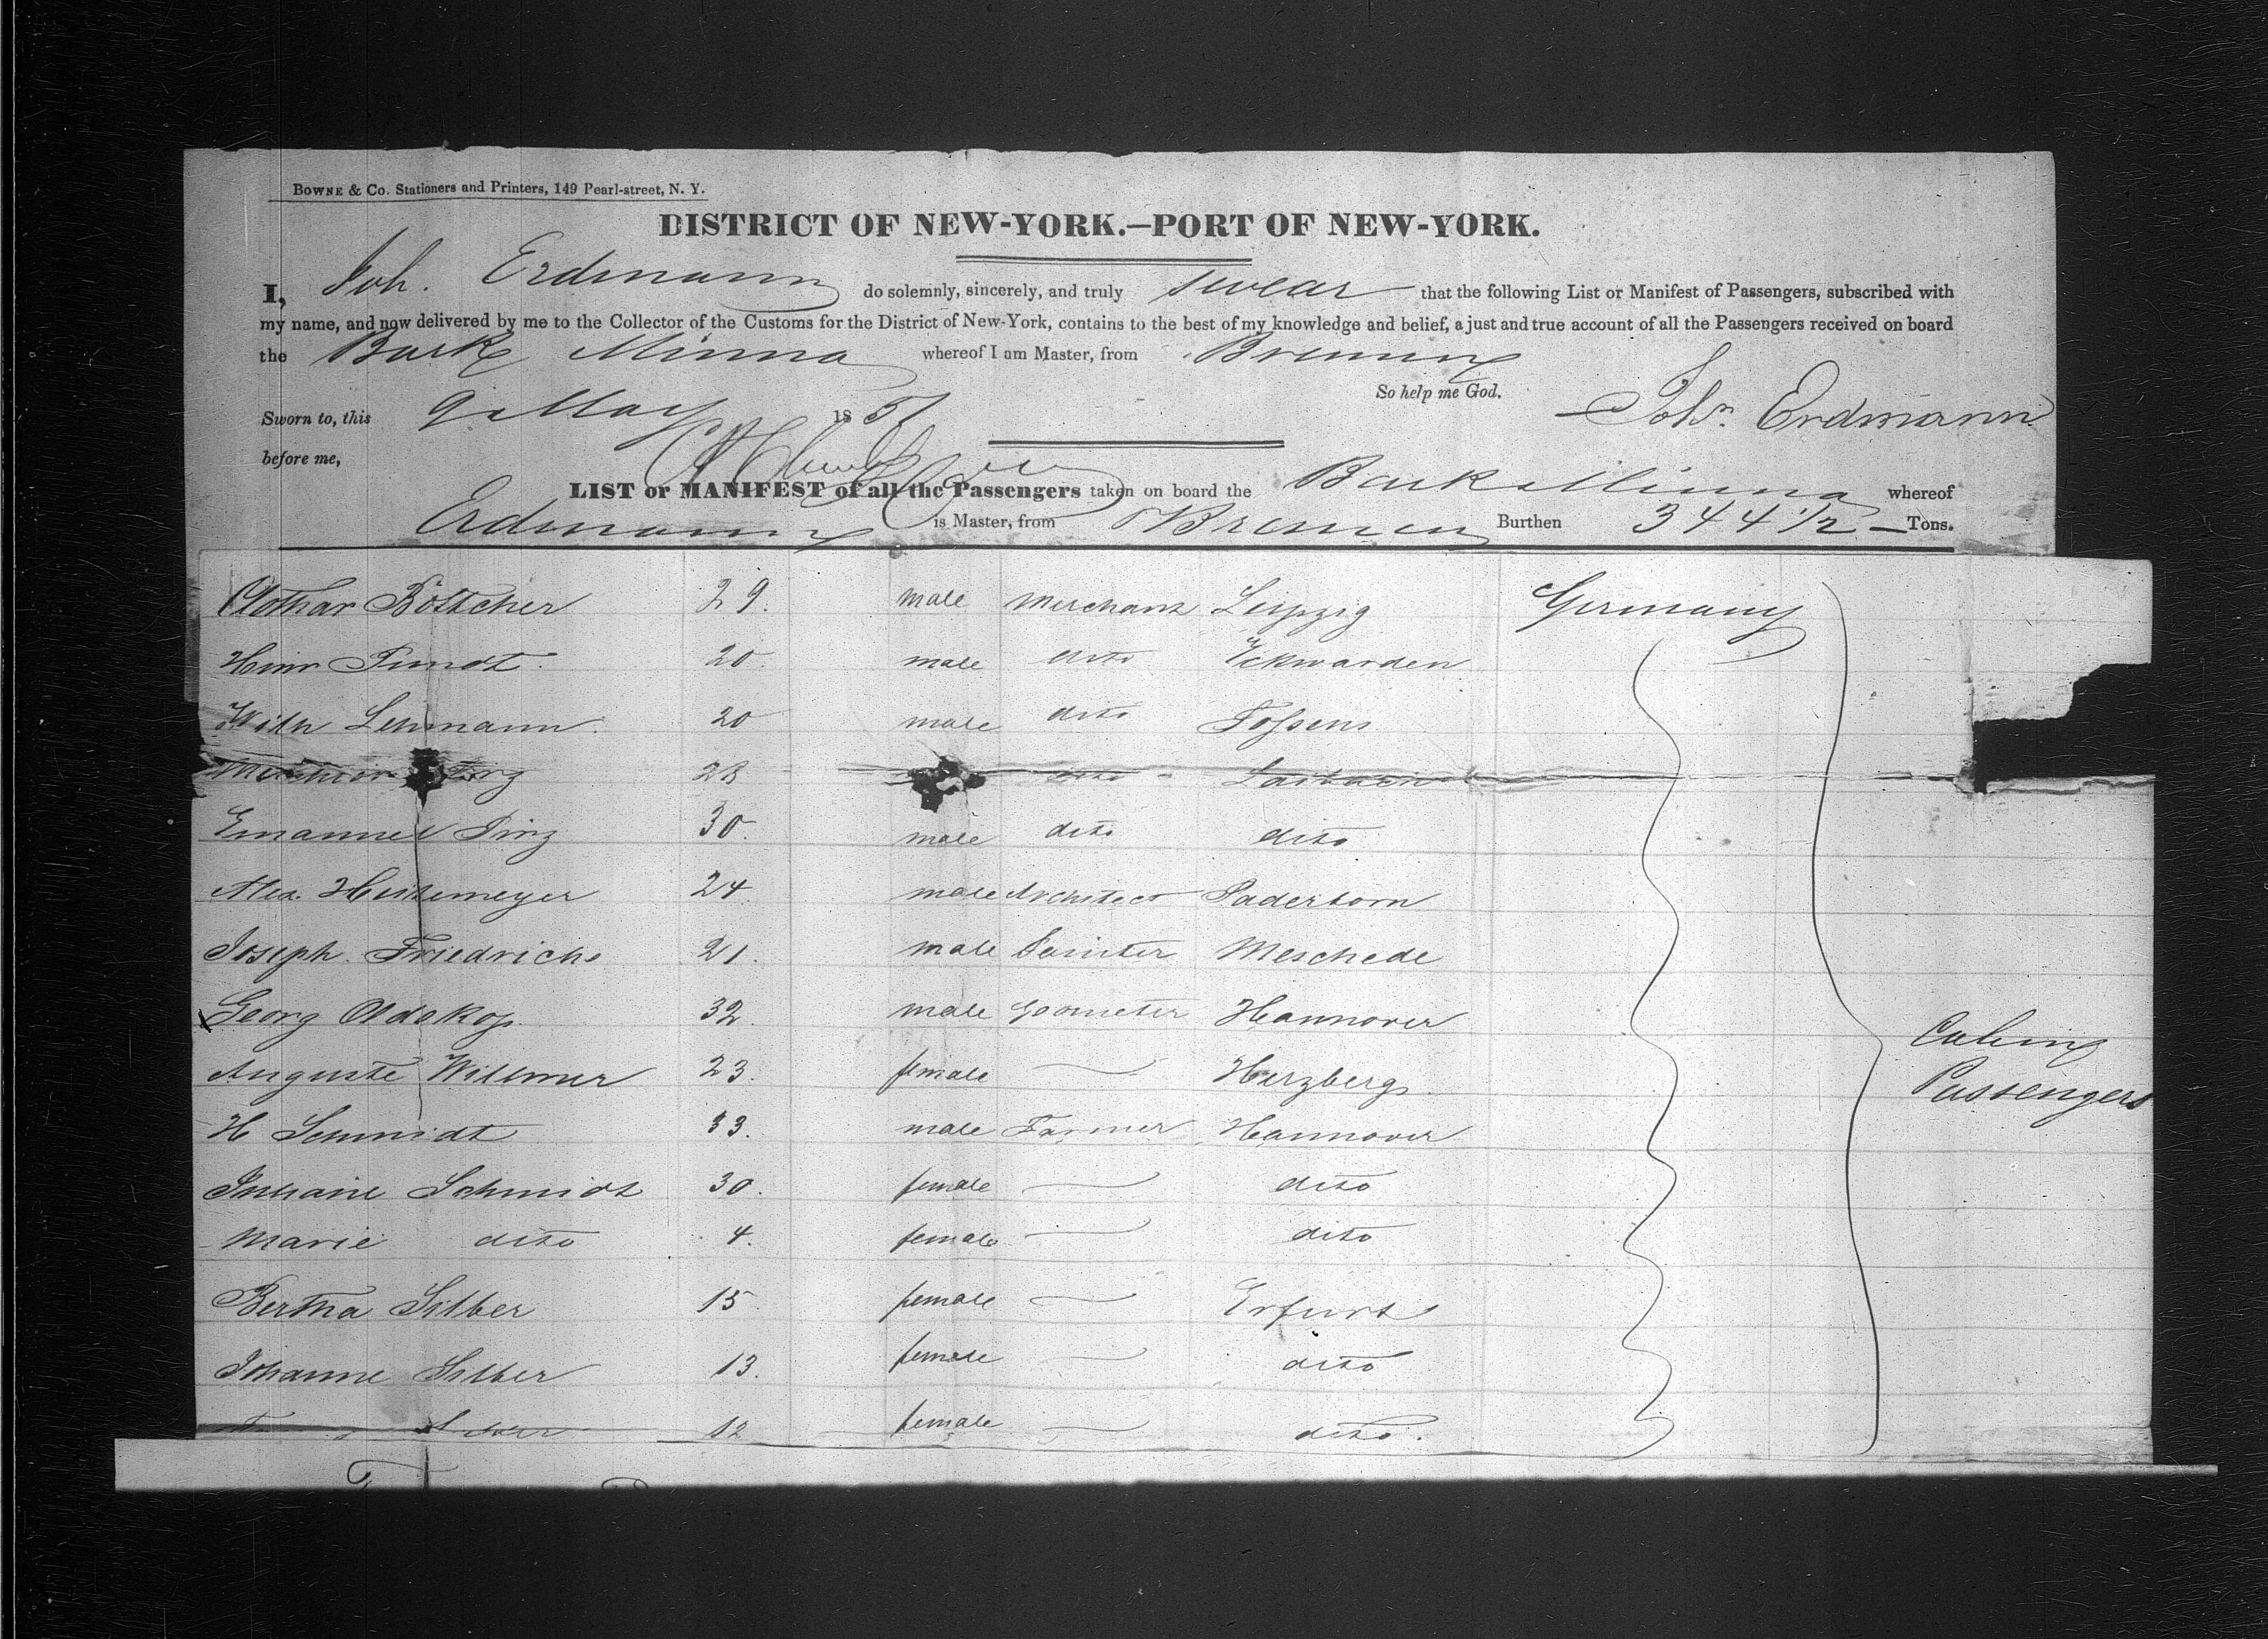 BOWNE & Co. Stationers and Printers, 149 Pearl-street, N. Y.
DISTRICT OF NEW-YORK.—PORT OF NEW-YORK.
I, Joh. Erdmann do solemnly, sincerely, and truly swear that the following List or Manifest of Passengers, subscribed with
my name, and now delivered by me to the Collector of the Customs for the District of New-York, contains to the best of my knowledge and belief, a just and true account of all the Passengers received on board
the Bark Minna whereof I am Master, from Bremen
So help me God.
Sworn to, this 9 May 1851 Joh. Erdmann
before me,
LIST or MANIFEST of all the Passengers taken on board the Bark Minna whereof
Erdmann is Master, from Bremen Burthen 344 1/2 Tons.
Clothar Böttcher 29. male Merchant Leipzig Germany
Hinr 20. male dito Eckwarden
Wilh Lehmann. 20 male dito Tossens
28 dito
Emanuel 30. male dito dito
Alex. Heitemeyer 24. male Architect Paderborn
Joseph Friedrichs 21. male Painter Meschede
Georg Oldekop. 32. male Geometer Hannover
Auguste Willmer 23. female — Herzberg
H Schmidt 33. male Farmer Hannover
Juliane Schmidt 30. female — dito
Marie dito 4. female — dito
Bertha Silber 15. female — Erfurt
Johanne Silber 13. female — dito
Silber 12 female — dito.
Cabin
Passengers